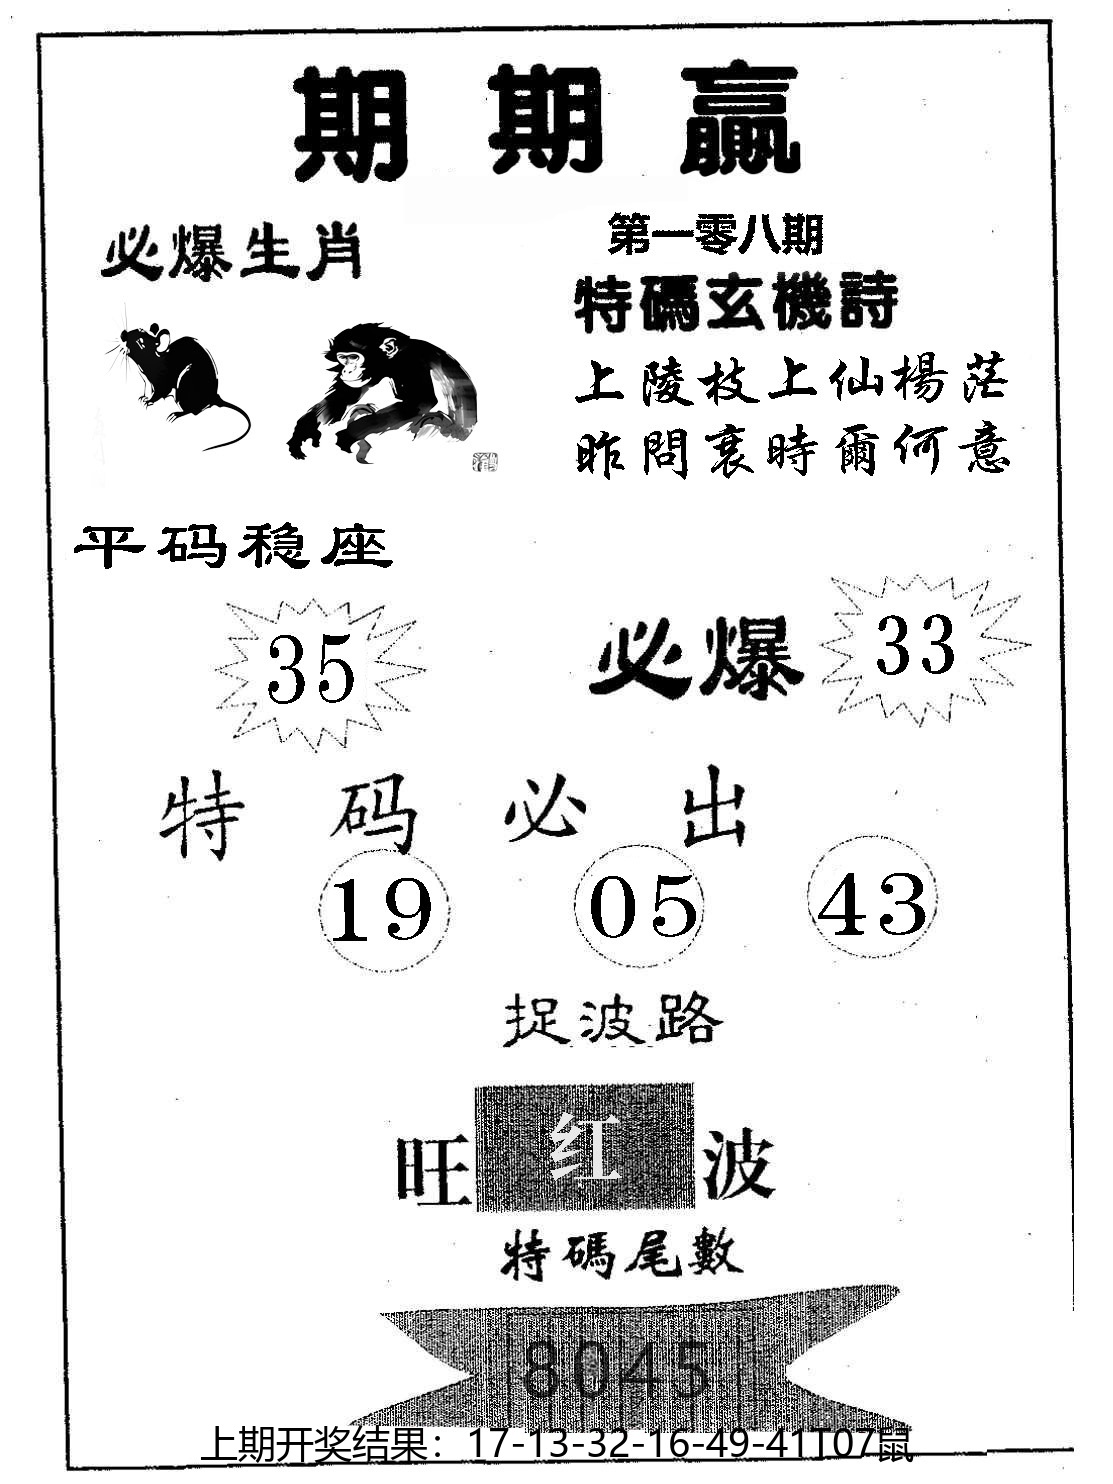 期期赢
必爆生肖
第一零八期
特碼玄機詩
上陵枝上仙楊茫
昨問衰時爾何意
平码稳座
35
必爆 33
特码必出
19 05 43
捉波路
旺 红 波
特碼尾數
8045
上期开奖结果：17-13-32-16-49-41T07鼠